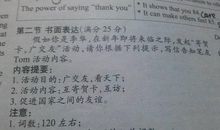 The power of saying "thank you"
• It shows that you
• It can make others feel
第二节 书面表达(满分25分)
假如你是李华,在新年即将来临之际,发起"寄贺
卡,广交友"活动,请你根据下列提示,写信告知笔友
Tom 活动内容。
内容提要:
1. 活动目的:广交友,看天下;
2. 活动内容:互寄贺卡,互访;
3. 促进国家之间的友谊。
注意:
1. 词数:120左右;